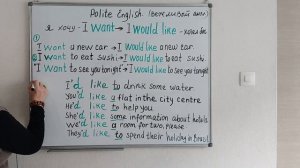 Polite English (вежливый англ)
я хочу - I want → I would like - хотел бы
①
I want a new car → I would like a new car
② I want to eat sushi → I would like to eat sushi
I want to see you tonight → I would like to see you tonight
I'd like to drink some water
You'd like a flat in the city centre
He'd like to help you
She'd like some information about hotels
We'd like a room for two, please
They'd like to spend their holiday in Brazil